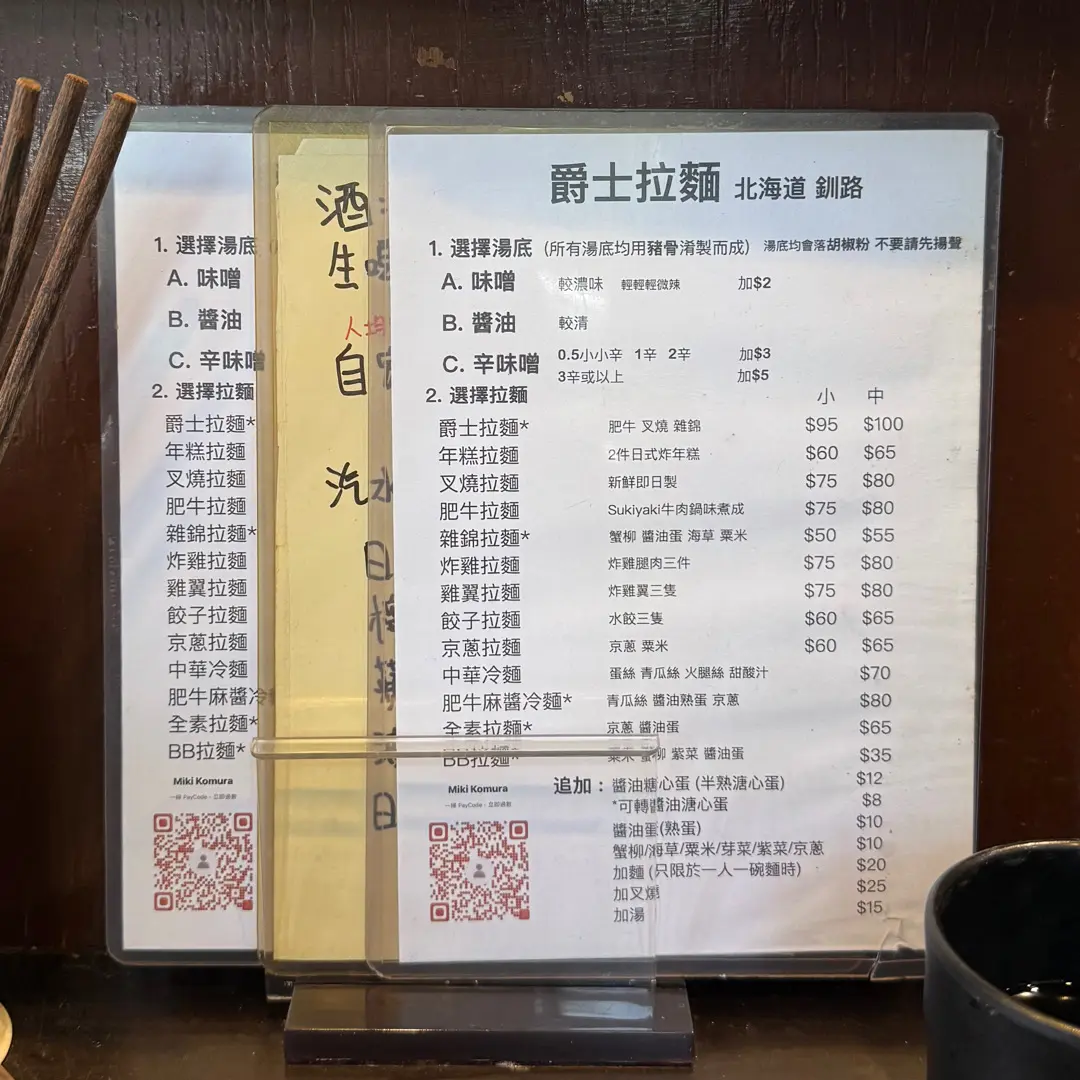 爵士拉麵 北海道 釧路
1. 選擇湯底 (所有湯底均用豬骨淆製而成) 湯底均會落胡椒粉 不要請先揚聲
A. 味噌 較濃味 輕輕輕微辣 加$2
B. 醬油 較清
C. 辛味噌 0.5小小辛 1辛 2辛 加$3
3辛或以上 加$5
2. 選擇拉麵 小 中
爵士拉麵* 肥牛 叉燒 雜錦 $95 $100
年糕拉麵 2件日式炸年糕 $60 $65
叉燒拉麵 新鮮即日製 $75 $80
肥牛拉麵 Sukiyaki牛肉鍋味煮成 $75 $80
雜錦拉麵* 蟹柳 醬油蛋 海草 粟米 $50 $55
炸雞拉麵 炸雞腿肉三件 $75 $80
雞翼拉麵 炸雞翼三隻 $75 $80
餃子拉麵 水餃三隻 $60 $65
京蔥拉麵 京蔥 粟米 $60 $65
中華冷麵 蛋絲 青瓜絲 火腿絲 甜酸汁 $70
肥牛麻醬冷麵* 青瓜絲 醬油熟蛋 京蔥 $80
全素拉麵* 京蔥 醬油蛋 $65
BB拉麵* 粟米 蟹柳 紫菜 醬油蛋 $35
追加： 醬油糖心蛋 (半熟溏心蛋) $12
*可轉醬油溏心蛋 $8
醬油蛋(熟蛋) $10
蟹柳/海草/粟米/芽菜/紫菜/京蔥 $10
加麵 (只限於一人一碗麵時) $20
加叉燒 $25
加湯 $15
Miki Komura
一掃 PayCode，立即過數
1. 選擇湯底
A. 味噌
B. 醬油
C. 辛味噌
2. 選擇拉麵
爵士拉麵*
年糕拉麵
叉燒拉麵
肥牛拉麵
雜錦拉麵*
炸雞拉麵
雞翼拉麵
餃子拉麵
京蔥拉麵
中華冷麵
肥牛麻醬冷
全素拉麵*
BB拉麵*
Miki Komura
一掃 PayCode，立即過數
酒
生啤
人均
自家
汽水
日
日